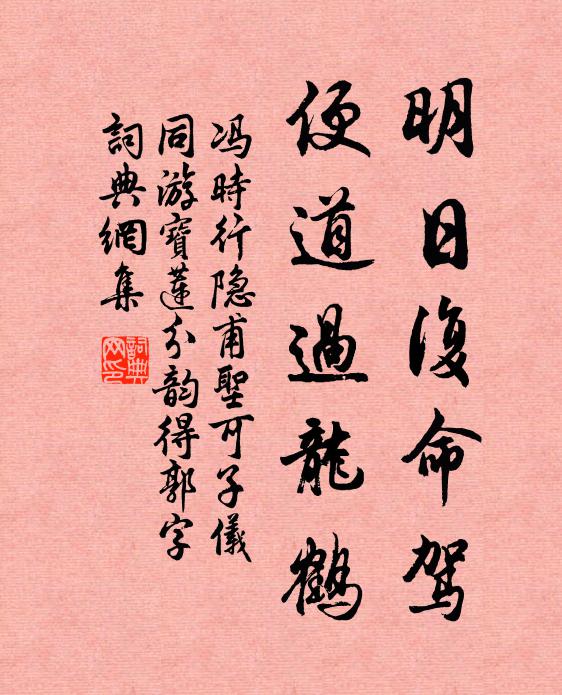 明日復命駕
便道過龍鶴
冯時行隐甫聖可子儀
同游寶蓮分韵得郭字
詞典網集
詞典网印